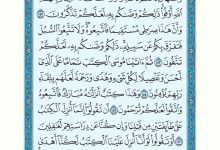 ٱللَّهِ أَوْفُوا۟ ذَٰلِكُمْ وَصَّىٰكُم بِهِۦ لَعَلَّكُمْ تَذَكَّرُونَ ۝
وَأَنَّ هَٰذَا صِرَٰطِى مُسْتَقِيمًا فَٱتَّبِعُوهُ وَلَا تَتَّبِعُوا۟ ٱلسُّبُلَ
فَتَفَرَّقَ بِكُمْ عَن سَبِيلِهِۦ ذَٰلِكُمْ وَصَّىٰكُم بِهِۦ لَعَلَّكُمْ
تَتَّقُونَ ۝ ثُمَّ ءَاتَيْنَا مُوسَى ٱلْكِتَٰبَ تَمَامًا عَلَى ٱلَّذِىٓ
أَحْسَنَ وَتَفْصِيلًا لِّكُلِّ شَىْءٍ وَهُدًى وَرَحْمَةً لَّعَلَّهُم بِلِقَآءِ
رَبِّهِمْ يُؤْمِنُونَ ۝ وَهَٰذَا كِتَٰبٌ أَنزَلْنَٰهُ مُبَارَكٌ فَٱتَّبِعُوهُ
وَٱتَّقُوا۟ لَعَلَّكُمْ تُرْحَمُونَ ۝ أَن تَقُولُوٓا۟ إِنَّمَآ أُنزِلَ ٱلْكِتَٰبُ
عَلَىٰ طَآئِفَتَيْنِ مِن قَبْلِنَا وَإِن كُنَّا عَن دِرَاسَتِهِمْ لَغَٰفِلِينَ
۝ أَوْ تَقُولُوا۟ لَوْ أَنَّآ أُنزِلَ عَلَيْنَا ٱلْكِتَٰبُ لَكُنَّآ أَهْدَىٰ